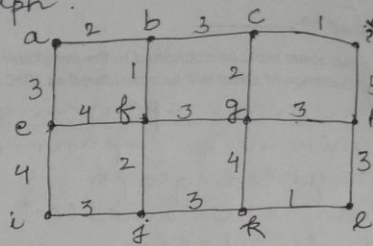 aph.
a 2 b 3 c 1
3 1 2 5
e 4 f 3 g 3 h
4 2 4 3
i 3 j 3 k 1 l